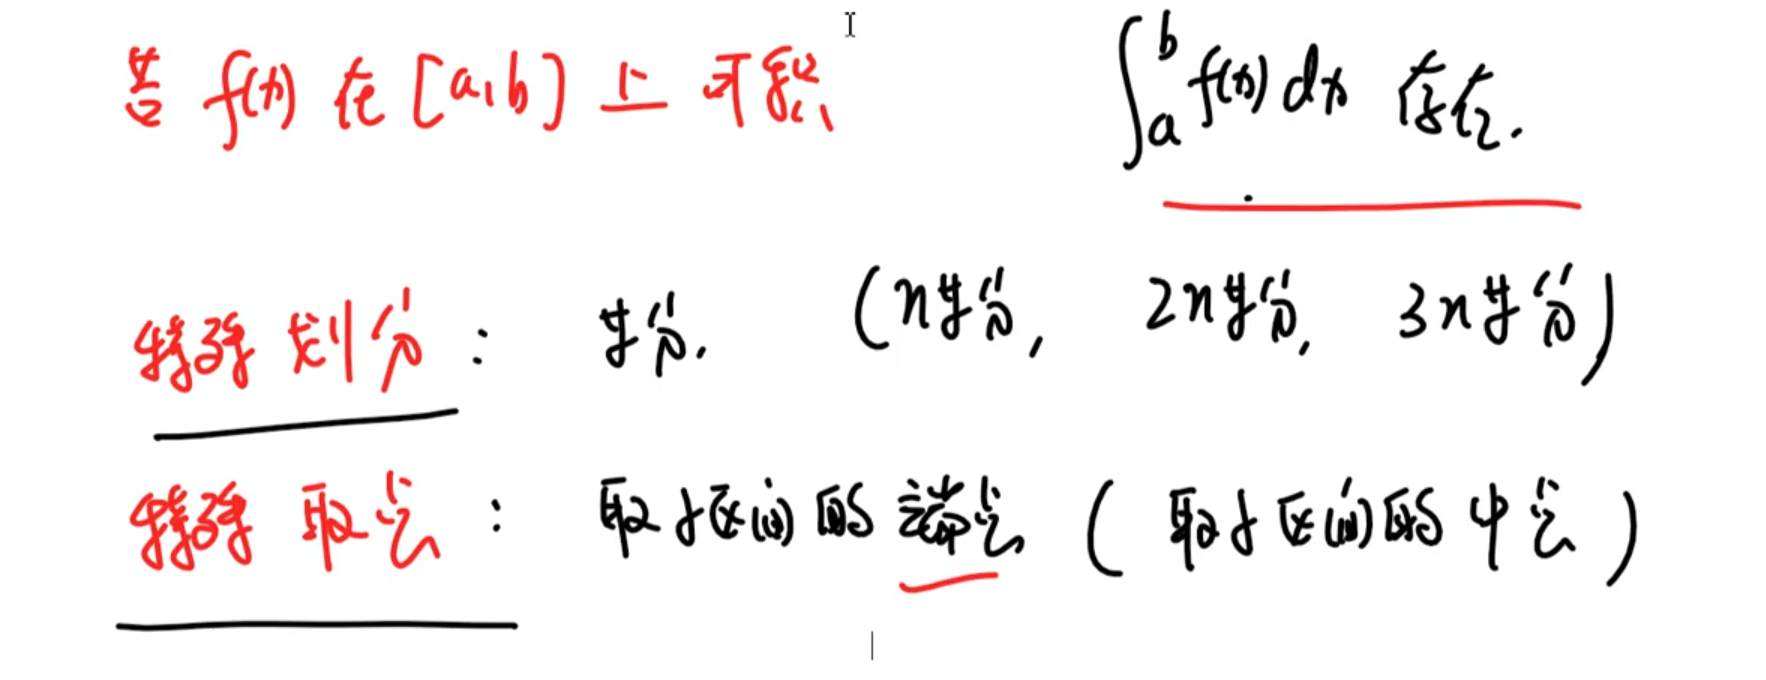 若 f(x) 在 [a,b] 上可积, ∫_a^b f(x) dx 存在.
特殊划分: 等分. (n等分, 2n等分, 3n等分)
特殊取点: 取小区间的端点 (取小区间的中点)